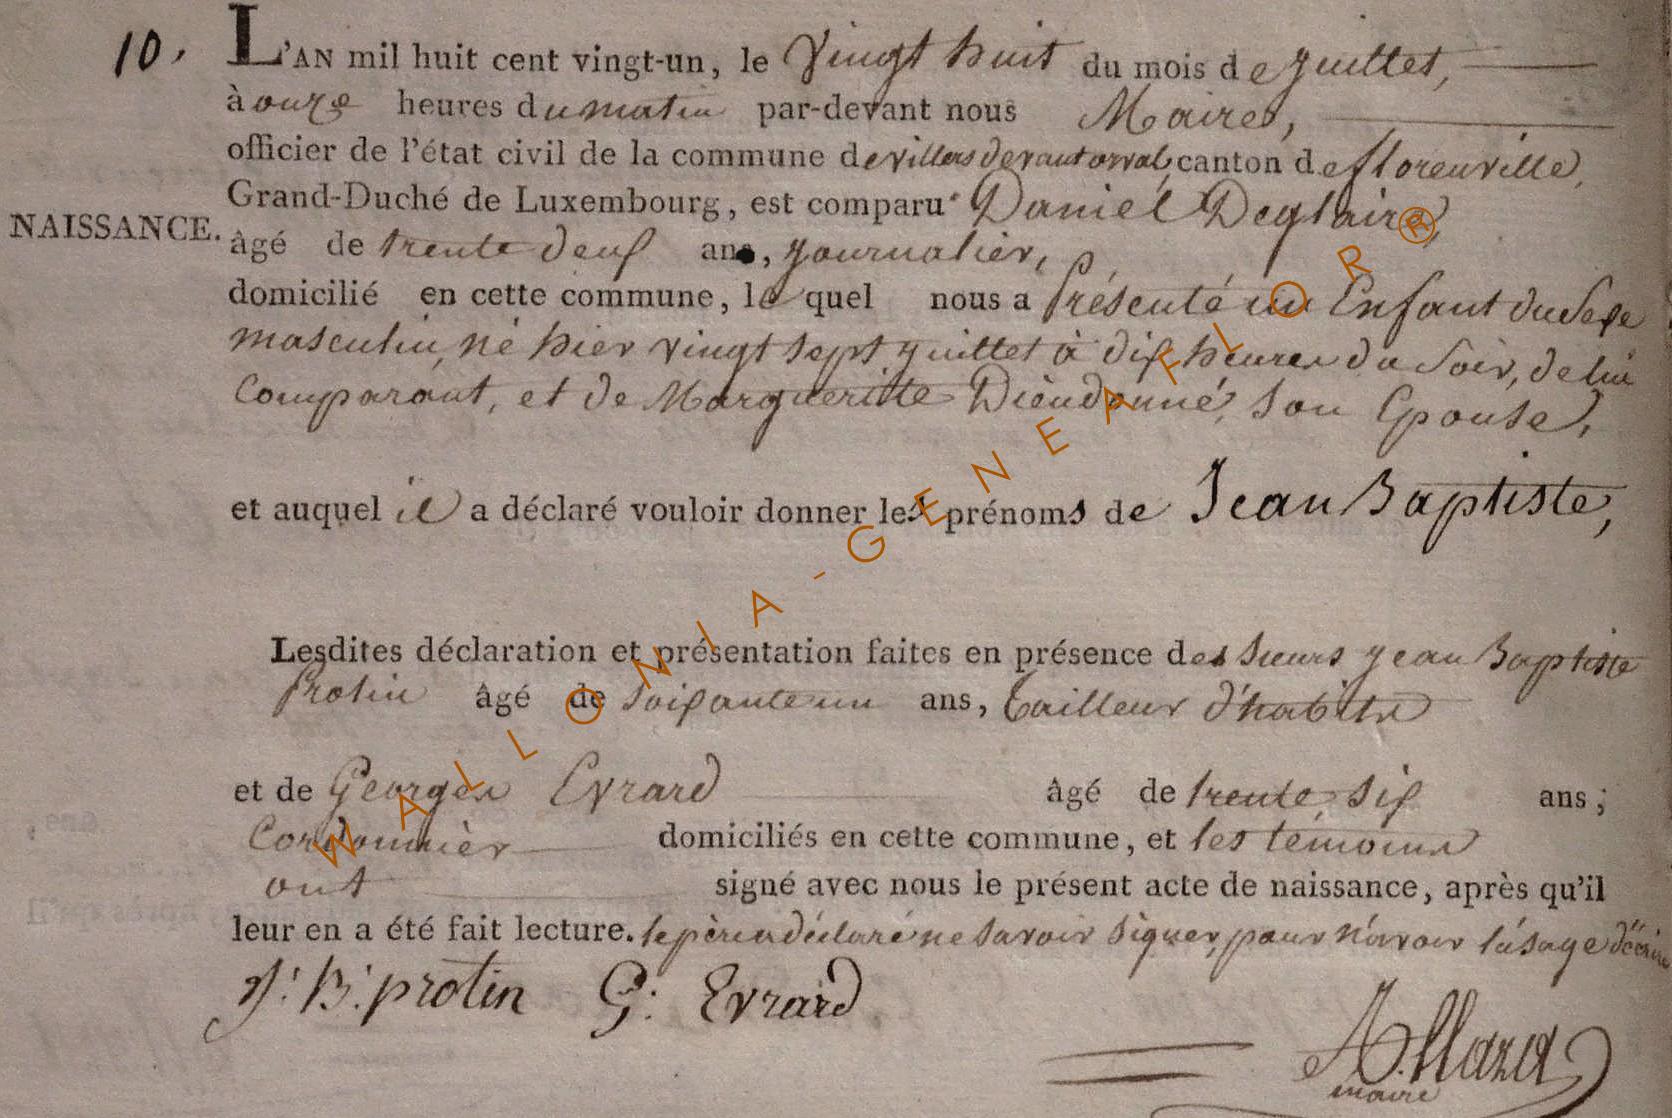 10. L'AN mil huit cent vingt-un, le Vingt huit du mois de juillet,
à onze heures du matin par-devant nous Maire,
officier de l'état civil de la commune de villers devant orval, canton de florenville,
Grand-Duché de Luxembourg, est comparu Daniel Deglaire,
NAISSANCE.
âgé de trente deux ans, journalier,
domicilié en cette commune, lequel nous a Présenté un Enfant du Sexe
masculin, né hier vingt sept juillet à dix heures du Soir, de lui
Comparant, et de Margueritte Dieudonné, son Epouse,
et auquel il a déclaré vouloir donner les prénoms de Jean Baptiste,
Lesdites déclaration et présentation faites en présence des sieurs jean Baptiste
Protin âgé de soixante un ans, tailleur d'habits
et de Georges Evrard âgé de trente six ans;
Cordonnier domiciliés en cette commune, et les témoins
ont signé avec nous le présent acte de naissance, après qu'il
leur en a été fait lecture. le père a déclaré ne savoir signer, pour n'avoir l'usage d'écrire
J. B. protin G: Evrard
maire
WALLONIA-GENEAFLOR®